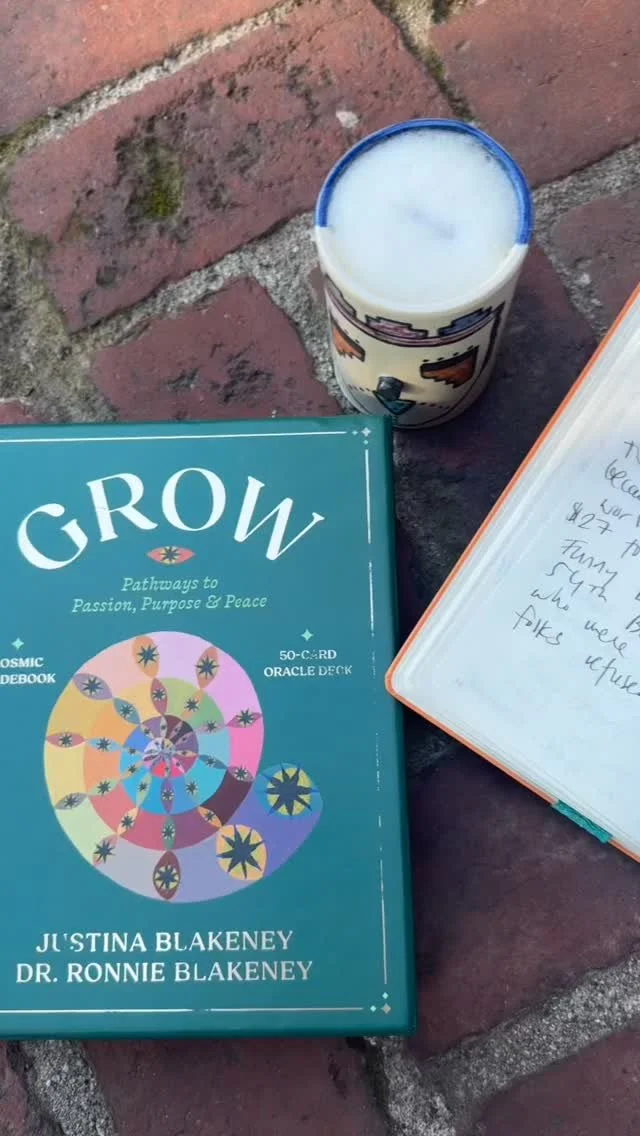 GROW
Pathways to
Passion, Purpose & Peace
OSMIC
DEBOOK
50-CARD
ORACLE DECK
JUSTINA BLAKENEY
DR. RONNIE BLAKENEY
$27 to
Funny
54th B
who were
folks refuse